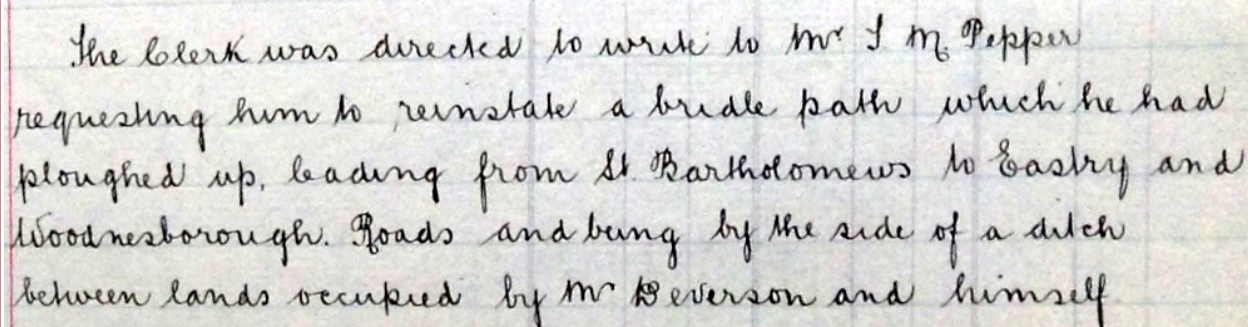 The Clerk was directed to write to Mr T M Pepper
requesting him to reinstate a bridle path which he had
ploughed up, leading from St. Bartholomews to Eastry and
Woodnesborough. Roads and being by the side of a ditch
between lands occupied by Mr Deverson and himself.